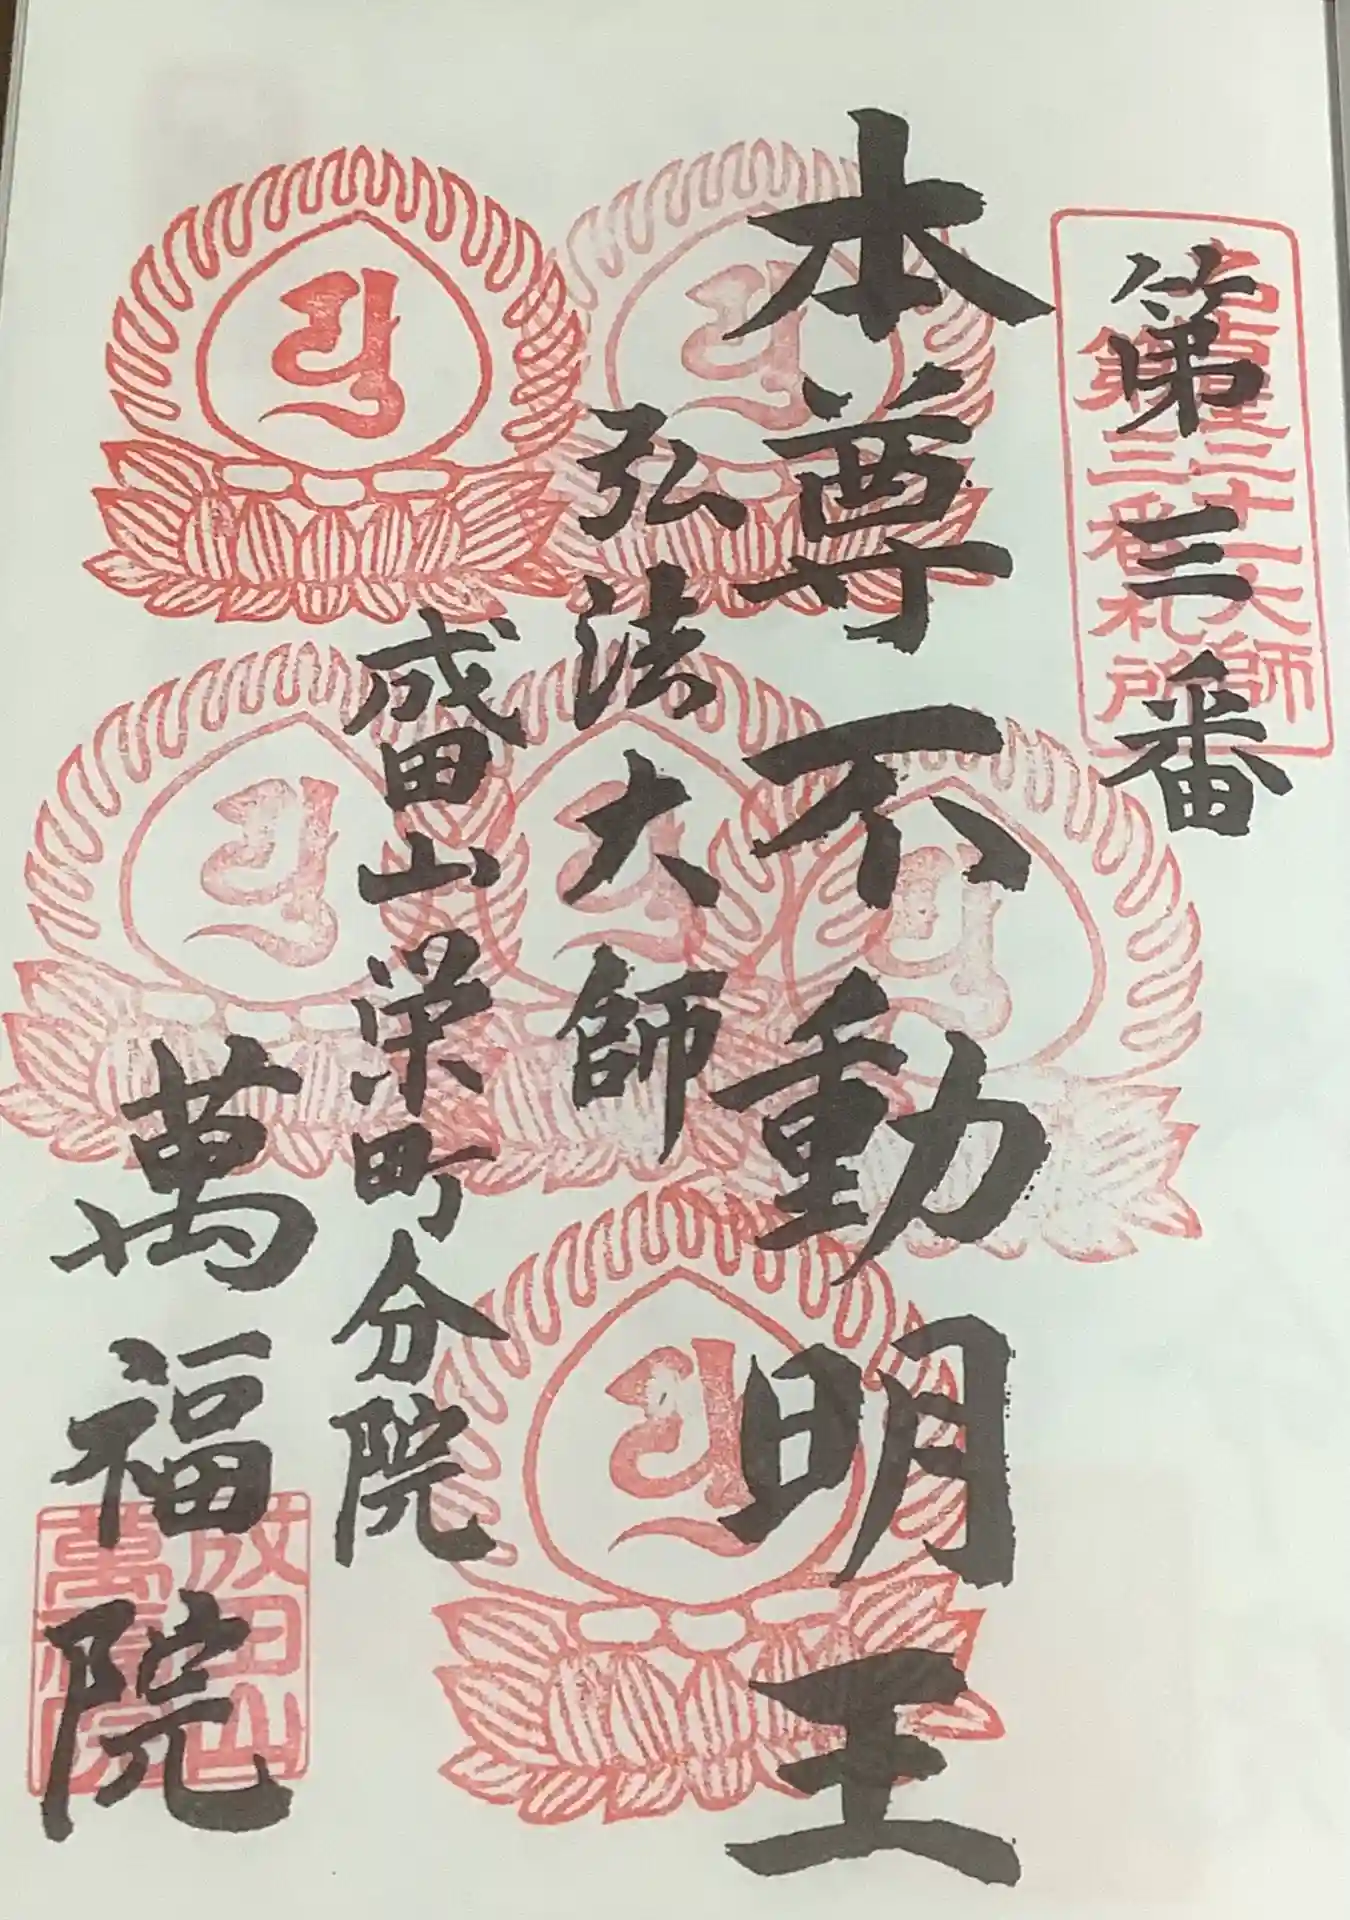 三十一大師
第三番札所
第三番
本尊不動明王
弘法大師
成田山栄町分院
萬福院
成田山
萬福院